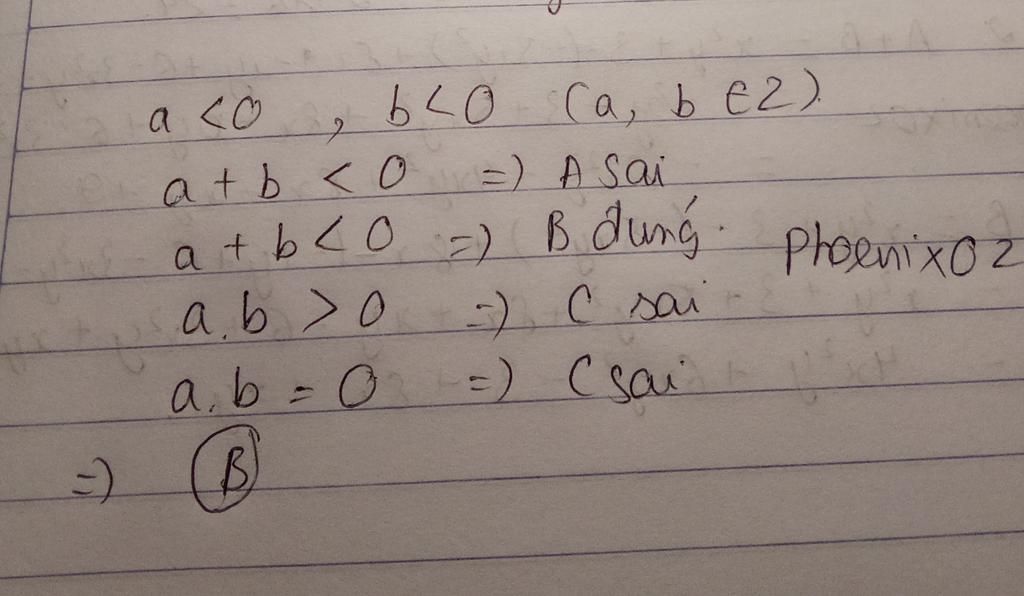 a < 0 , b < 0 (a, b ∈ Z).
a + b < 0 => A sai
a + b < 0 => B đúng.
Phoenix02
a.b > 0 => C sai
a.b = 0 => C sai
=> B